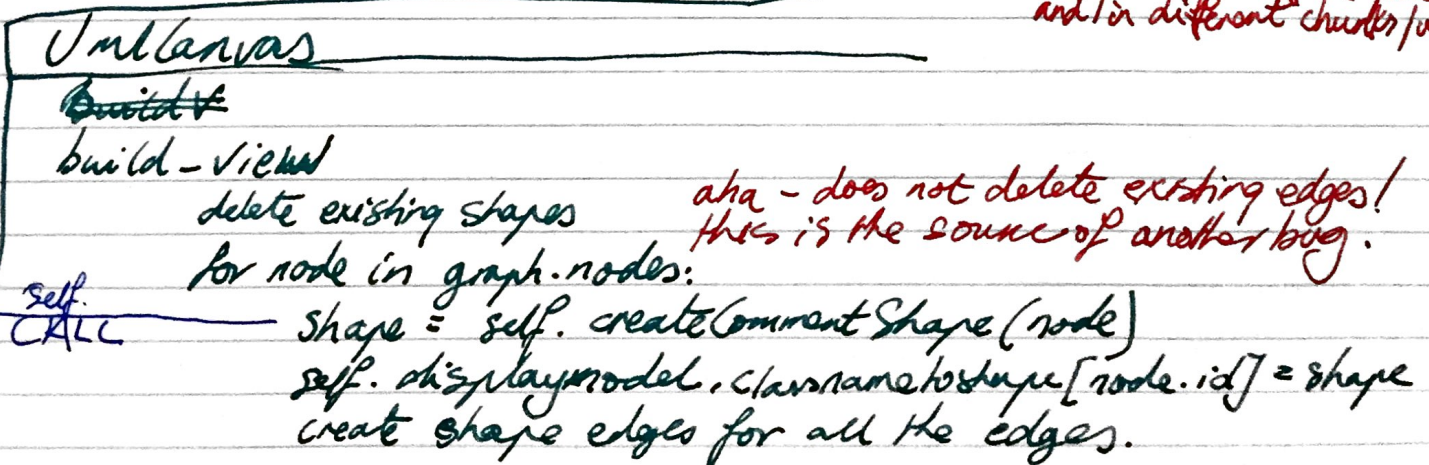 and/in different chunks/
UmlCanvas
buildV
build_view
delete existing shapes
aha - does not delete existing edges!
this is the source of another bug.
for node in graph.nodes:
self.
CALC
shape = self.createCommentShape(node)
self.displaymodel.classnametoshape[node.id] = shape
create shape edges for all the edges.